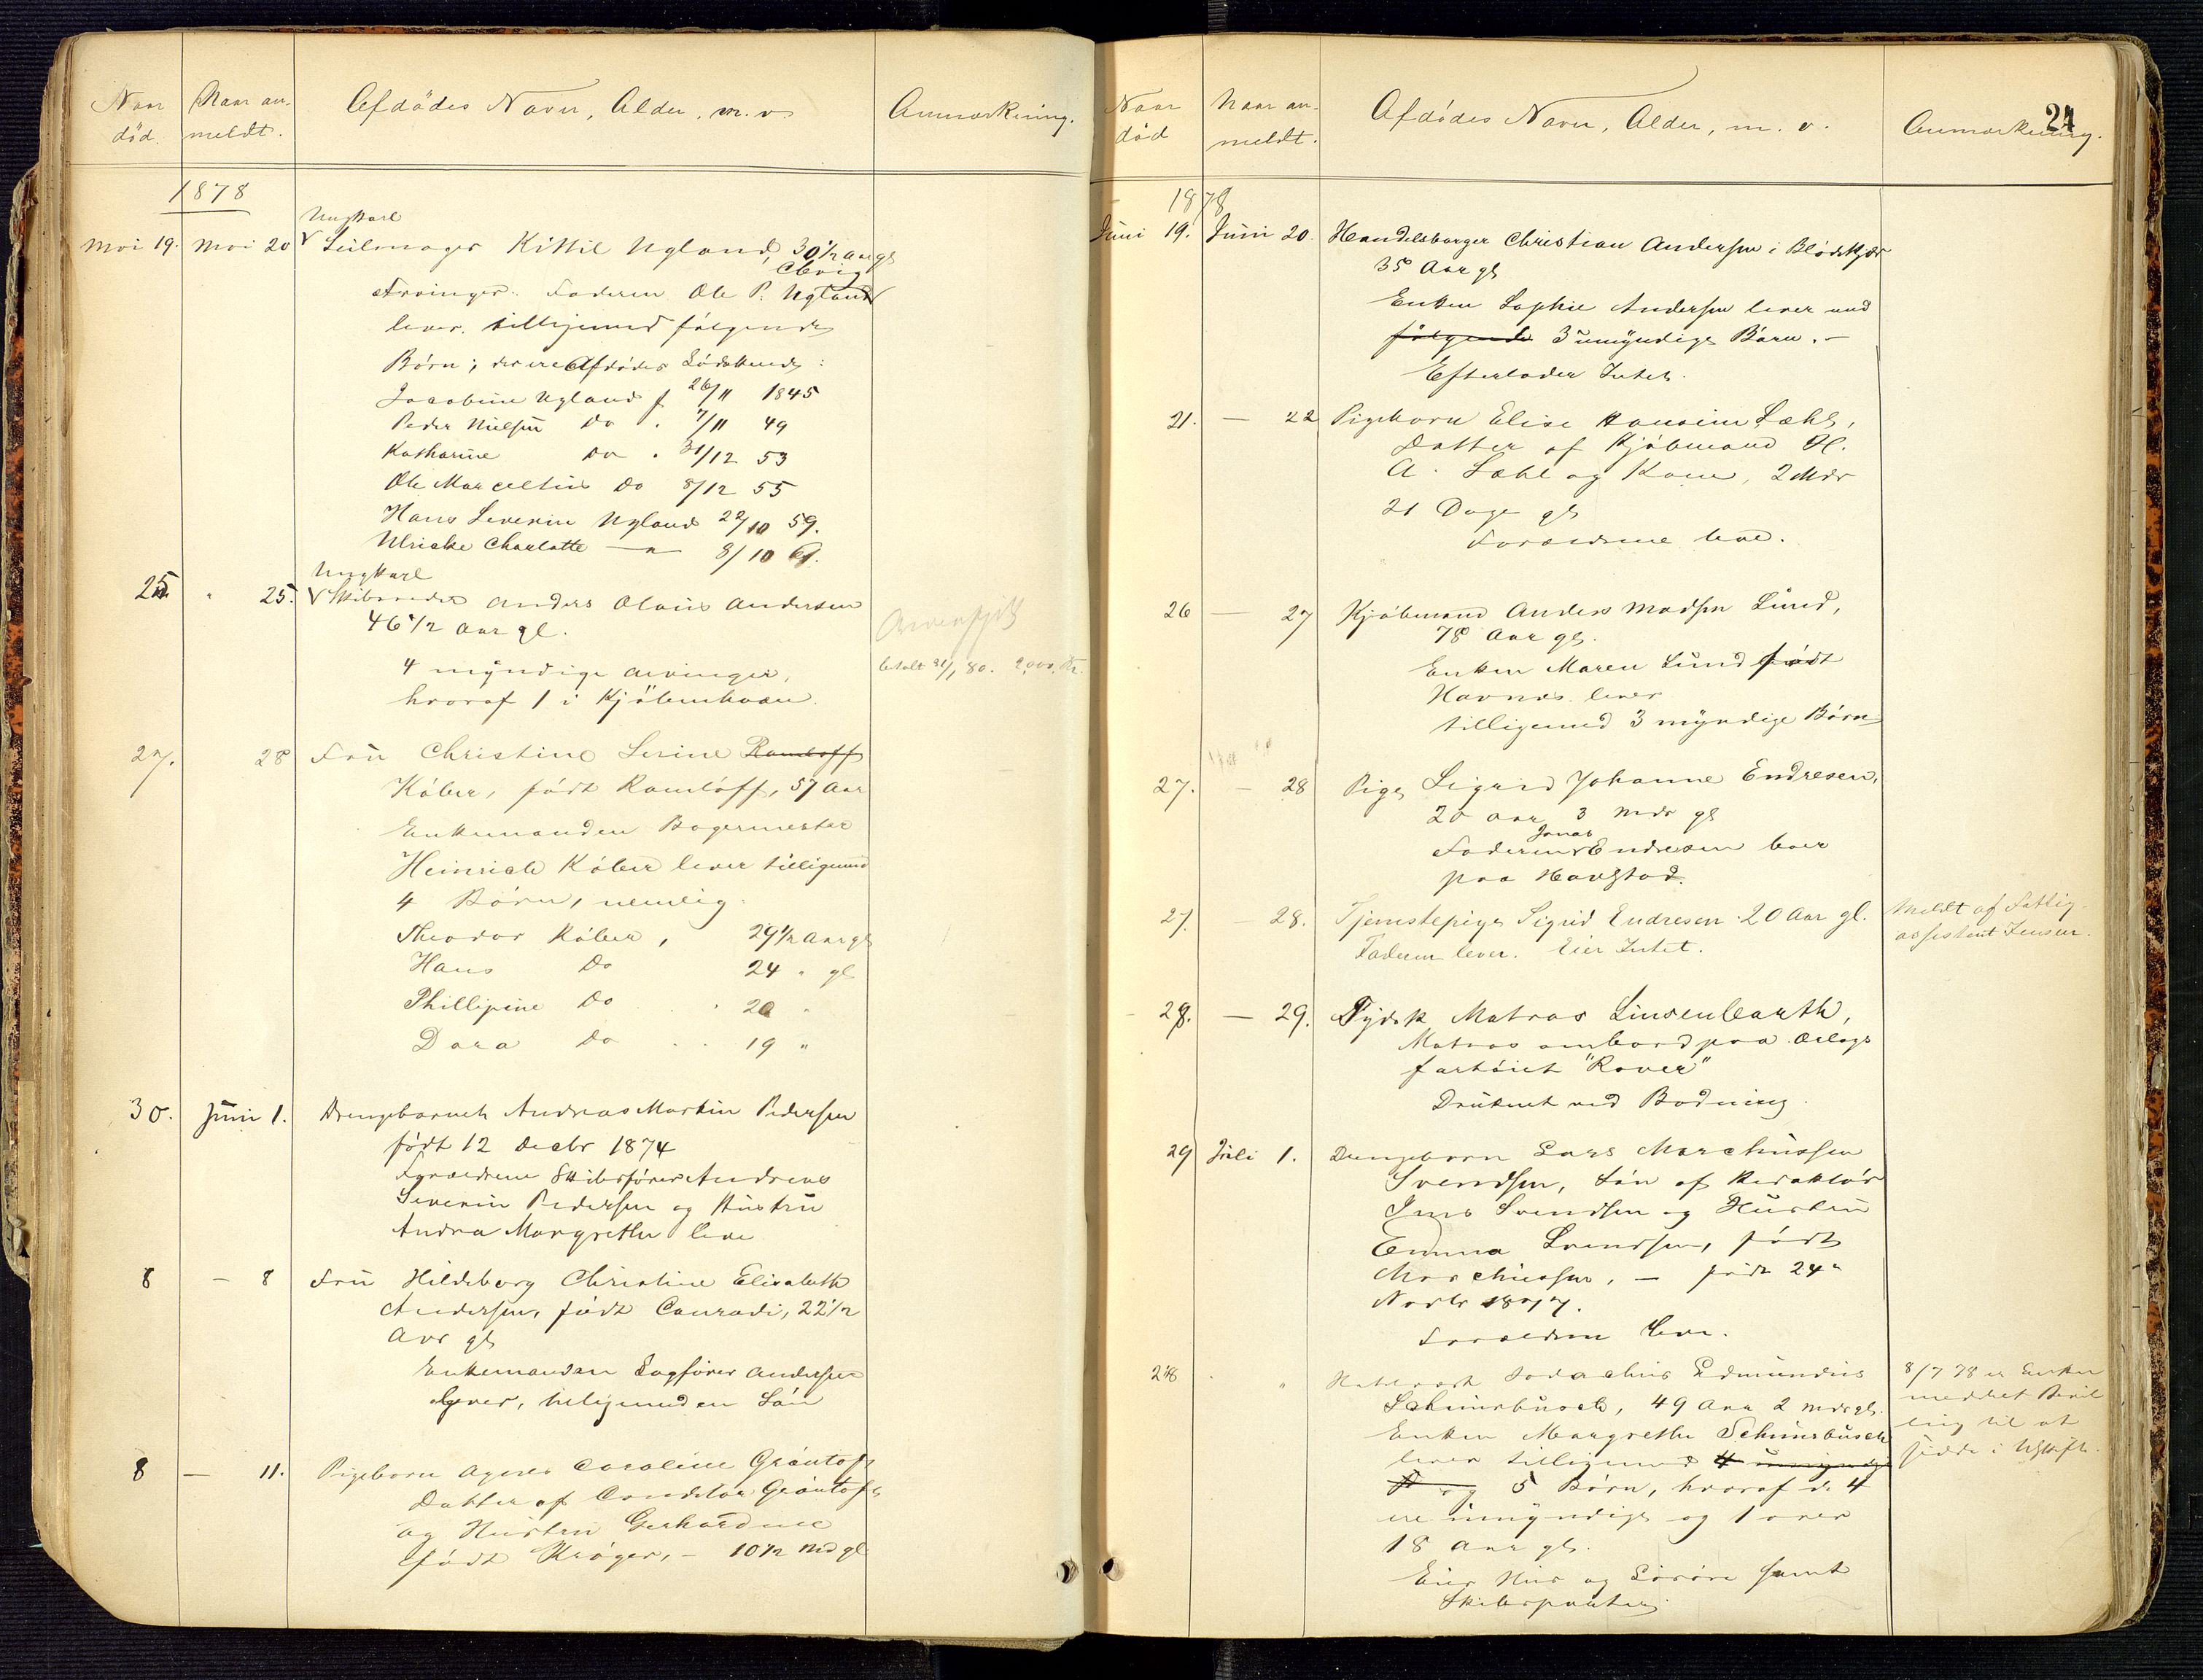 Naar død.
Naar anmeldt.
Afdødes Navn, Alder, m.v.
Anmærkning.
1878
Mai 19. Mai 20
Ungkarl
Seilmager Kittil Ugland, 30 1/2 Aar gl
Arvinger: Faderen Ole P. Ugland
lever, tilligemed følgende
Børn; der ere Afdødes Sødskende:
Jacobine Ugland f 26/11 1845
Peder Nielsen Do . 7/11 49
Katharine Do . 31/12 53
Ole Marcelius Do 8/12 55
Hans Severin Ugland 22/10 59.
Ulricke Charlotte — " — 8/10 61.
25. " 25.
Ungkarl
Skibsreder Anders Olaus Andersen
46 1/2 Aar gl.
4 myndige Arvinger,
hvoraf 1 i Kjøbenhavn.
betalt 31/1 80. 2000 Kr.
27. 28
Fru Christine Serine Ramløff
Køber, født Ramløff, 57 Aar
Enkemanden Bagermester
Heinrich Køber lever tilligemed
4 Børn, nemlig:
Theodor Køber, 29 1/2 Aar gl
Hans Do 24 " gl
Phillipine Do . 20 "
Dora Do . . 19 "
30. Juni 1.
Drengebarnet Andreas Martin Pedersen
født 12 Decbr 1874
Forældrene Skibsfører Andreas
Severin Pedersen og Hustru
Andrea Margrethe leve
8 — 8
Fru Hildeborg Christine Elisabeth
Andersen, født Conradi, 22 1/2
Aar gl
Enkemanden Sagfører Andersen
lever, tilligemed en Søn
8 — 11.
Pigebarn Agnes Caroline Gröntoft
Datter af Conditor Gröntoft
og Hustru Gerhardine
født Krøger, — 10 1/2 Md gl.
Naar død
Naar anmeldt.
Afdødes Navn, Alder, m. v.
Anmærkning.
24
1878
Juni 19. Juni 20.
Handelsborger Christian Andersen i Blødekjær
35 Aar gl
Enken Sophie Andersen lever med
følgende 3 umyndige Børn. —
Efterlader Intet.
21. — 22
Pigebarn Elise Hansine Dæhl,
Datter af Kjøbmand H.
A. Dæhl og Kone, 2 Mdr
21 Dage gl
Forældrene leve.
26 — 27
Kjøbmand Anders Madsen Lund,
78 Aar gl.
Enken Maren Lund født
Havnes lever
tilligemed 3 myndige Børn
27. — 28
Pige Sigrid Johanne Endresen,
20 Aar 3 Mdr gl
Jonas
Faderen Endresen boer
paa Havstad.
27. — 28.
Tjenestepige Sigrid Endresen 20 Aar gl.
Faderen lever. Eier Intet.
Meldt af Fattig-
assistent Jensen.
28. — 29.
Tydsk Matros Linsenbarth,
Matros ombord paa Orlogs
fartøiet "Rover"
Druknet ved Badning.
29 Juli 1.
Drengebarn Lars Marchussen
Svendsen, Søn af Redaktør
Jens Svendsen og Hustru
Emma Svendsen, født
Marchussen, — født 24de
Novbr 1877.
Forældrene leve.
28 "
Edmundus
Schimsbusch, 49 Aar 2 Mdr gl.
Enken Margrethe Schimsbusch
lever tilligemed 4 umyndige
og 5 Børn, hvoraf de 4
ere umyndige og 1 over
18 Aar gl.
Eier Hus og Løsøre samt
Skibsparter
8/7 78 er Enken
meddelt Bevil
ling til at
sidde i Uskifte.